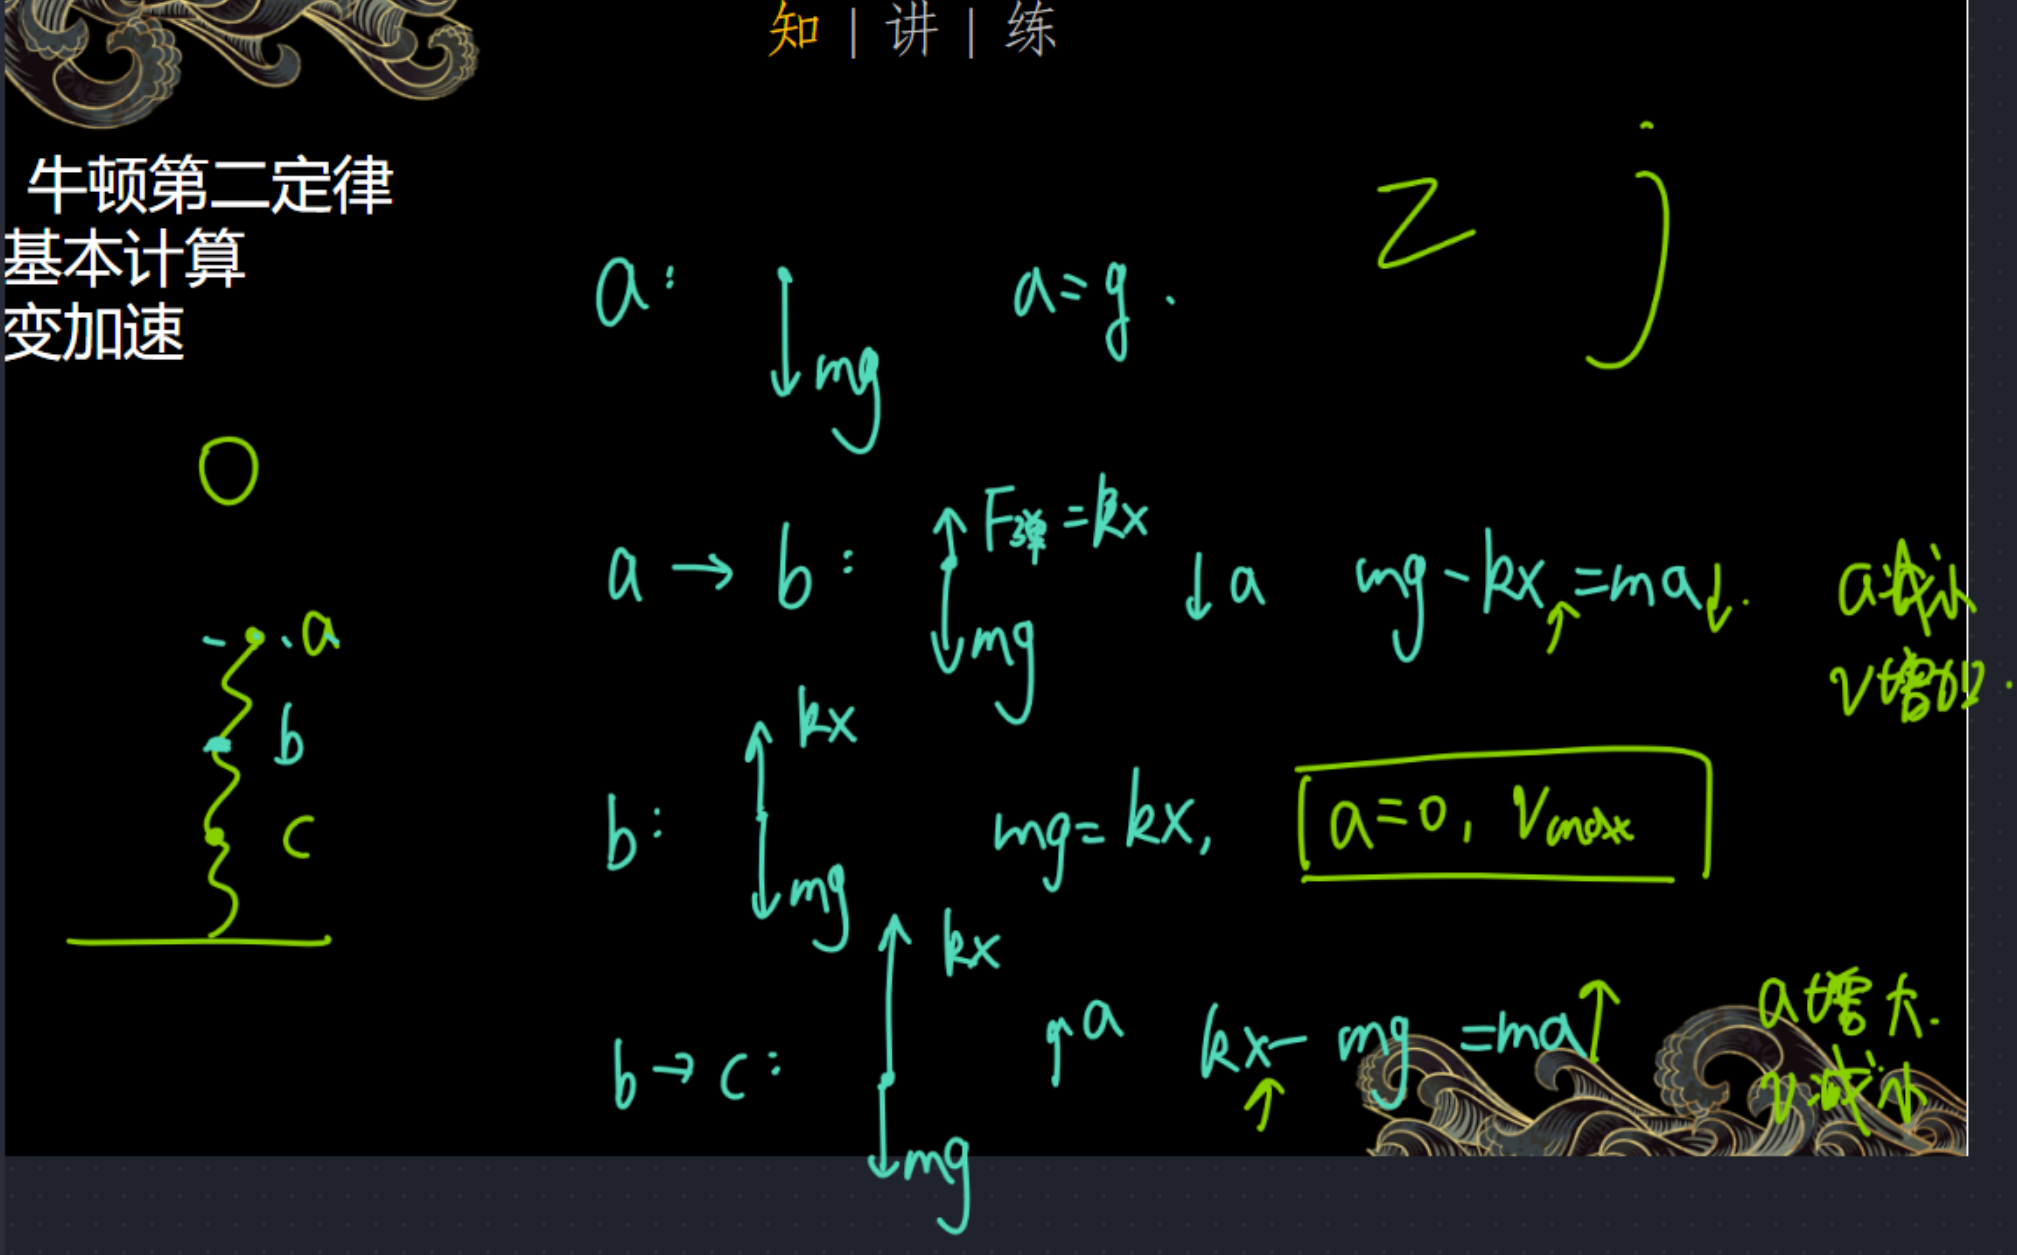 知 | 讲 | 练
牛顿第二定律
基本计算
变加速
z j
a: mg a=g.
a → b: F弹=kx mg ↓a mg-kx↑=ma↓. a减小
v增加.
b: kx mg mg=kx, a=0, Vmax
b→c: kx mg ↑a kx↑-mg=ma↑ a增大.
v减小
a
b
c